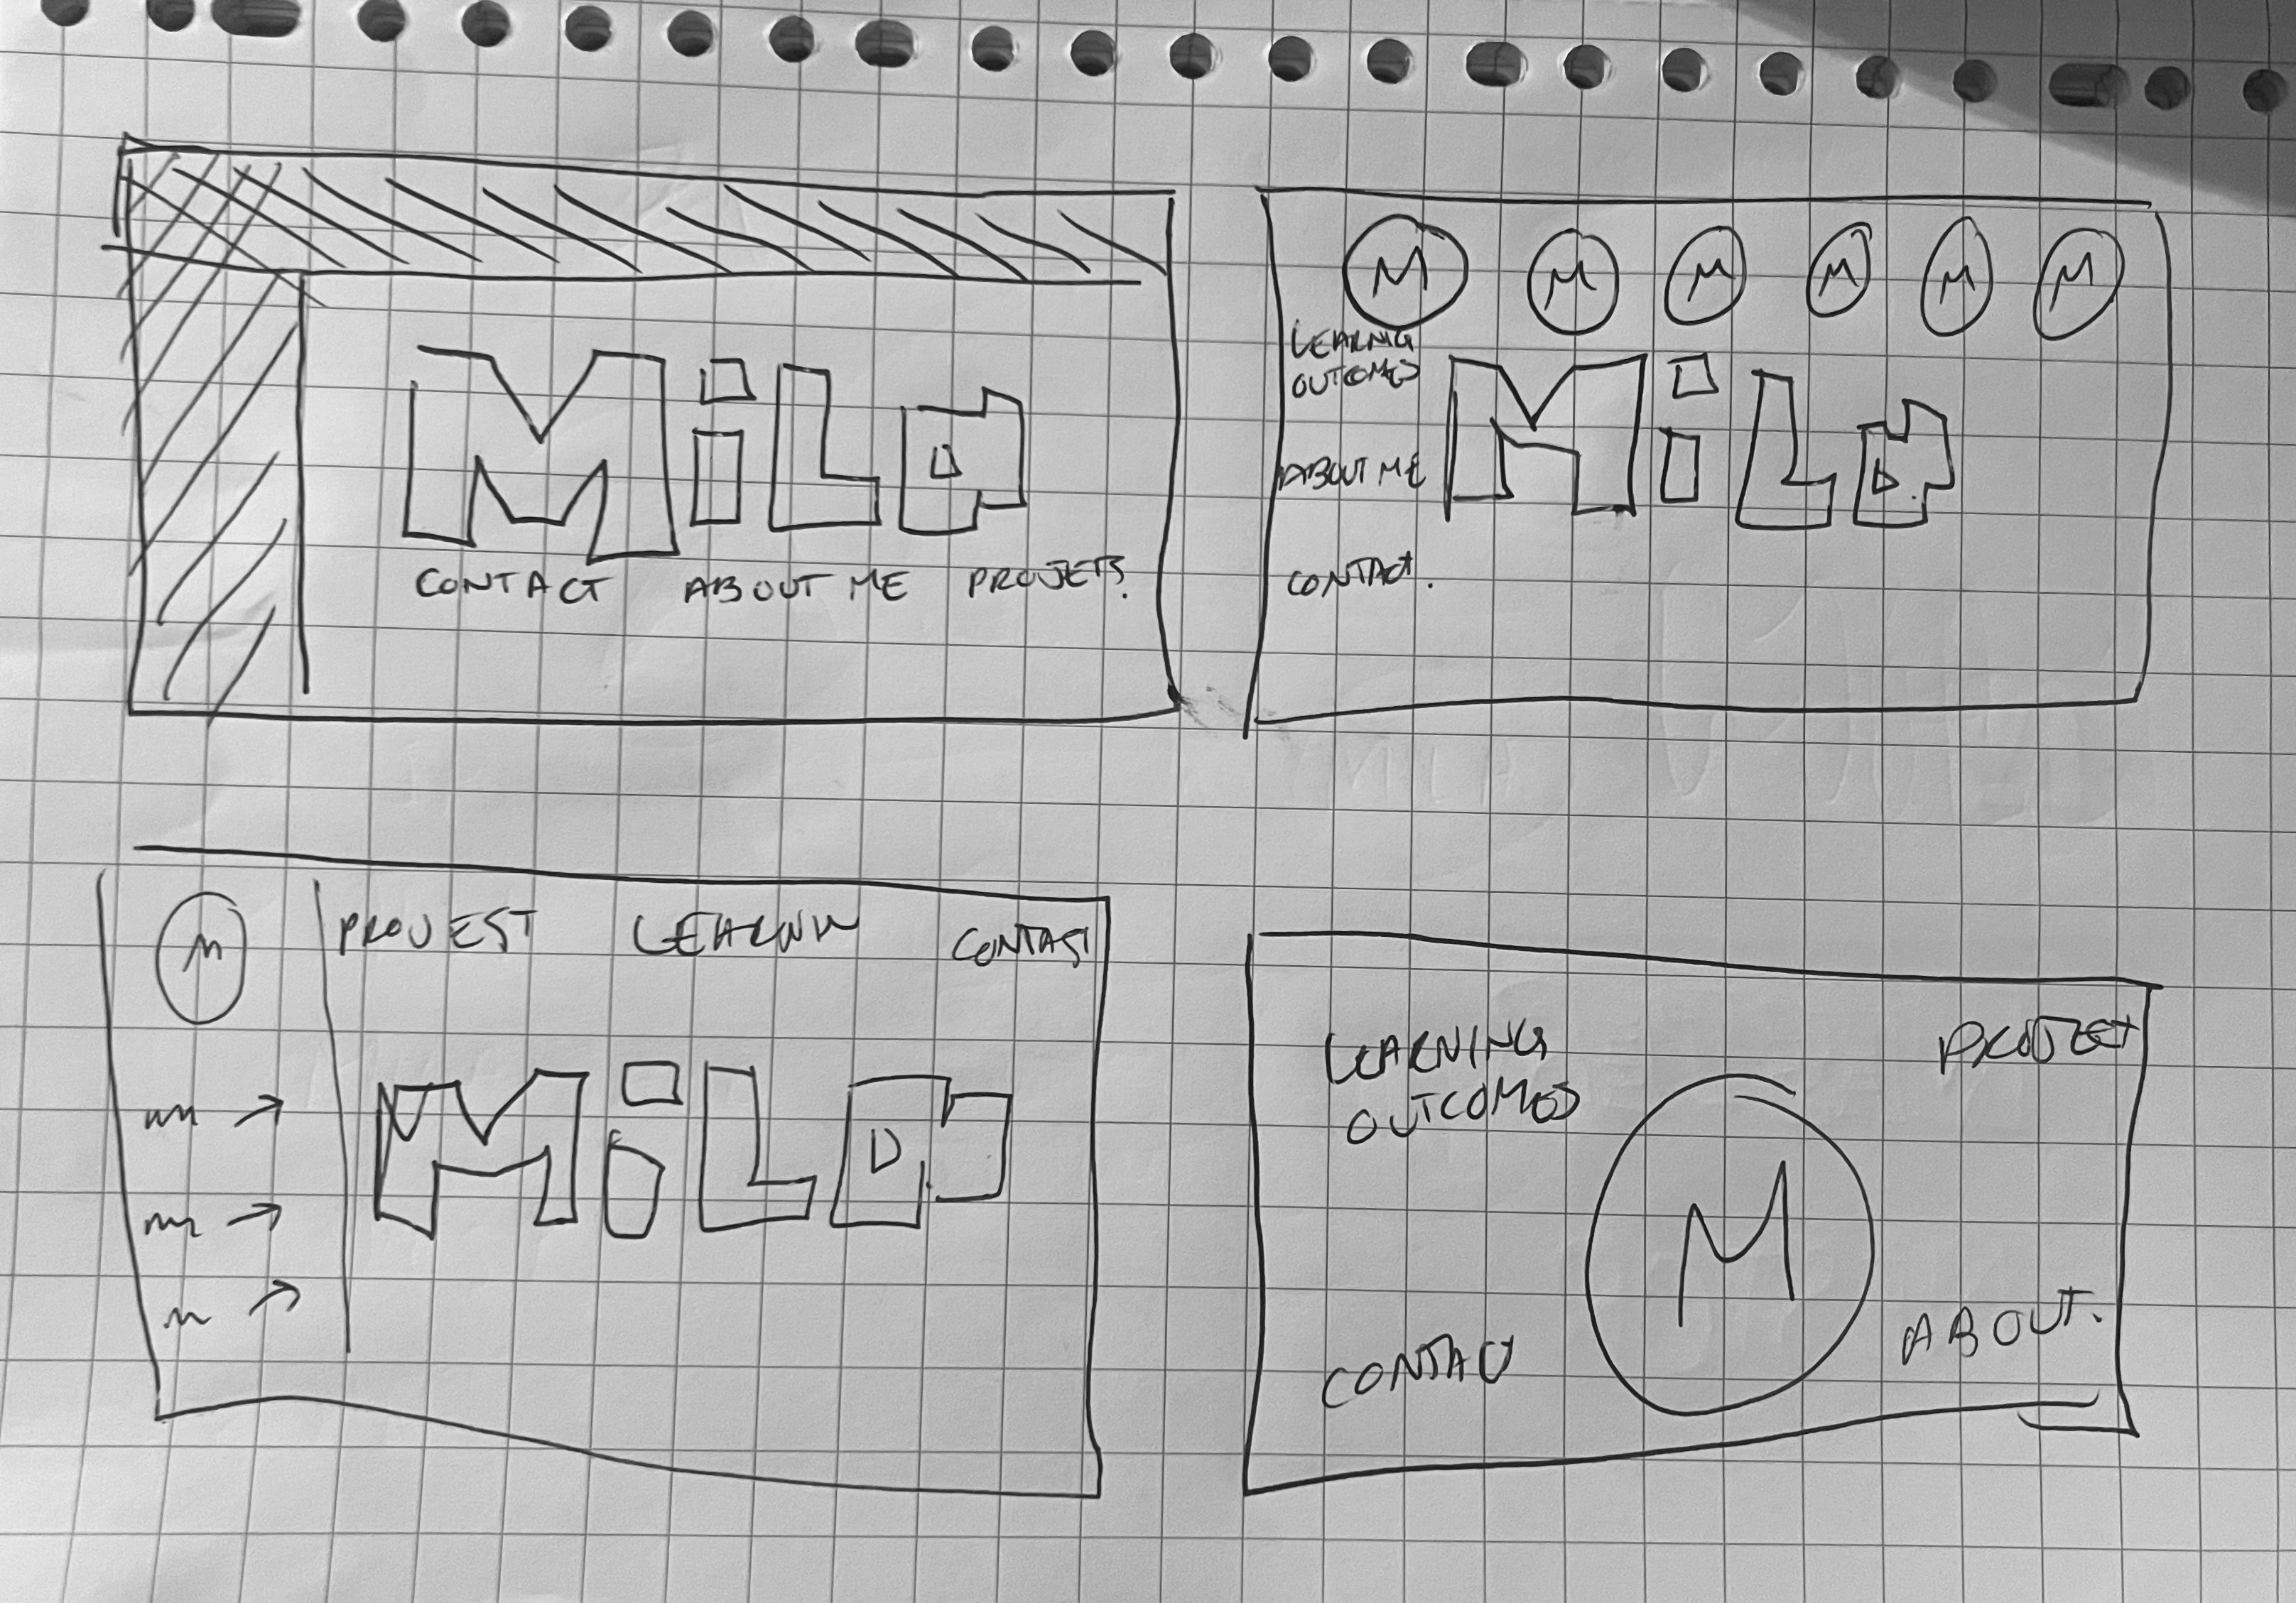 MiLO
CONTACT ABOUT ME PROJETS.
M M M M M M
LEARNIG
OUTCOMES
MiLO
ABOUT ME
CONTACT.
M
PROJEST LEARNIN CONTAST
MiLO
LEARNING
OUTCOMES
PROJECT
M
CONTACT
ABOUT.